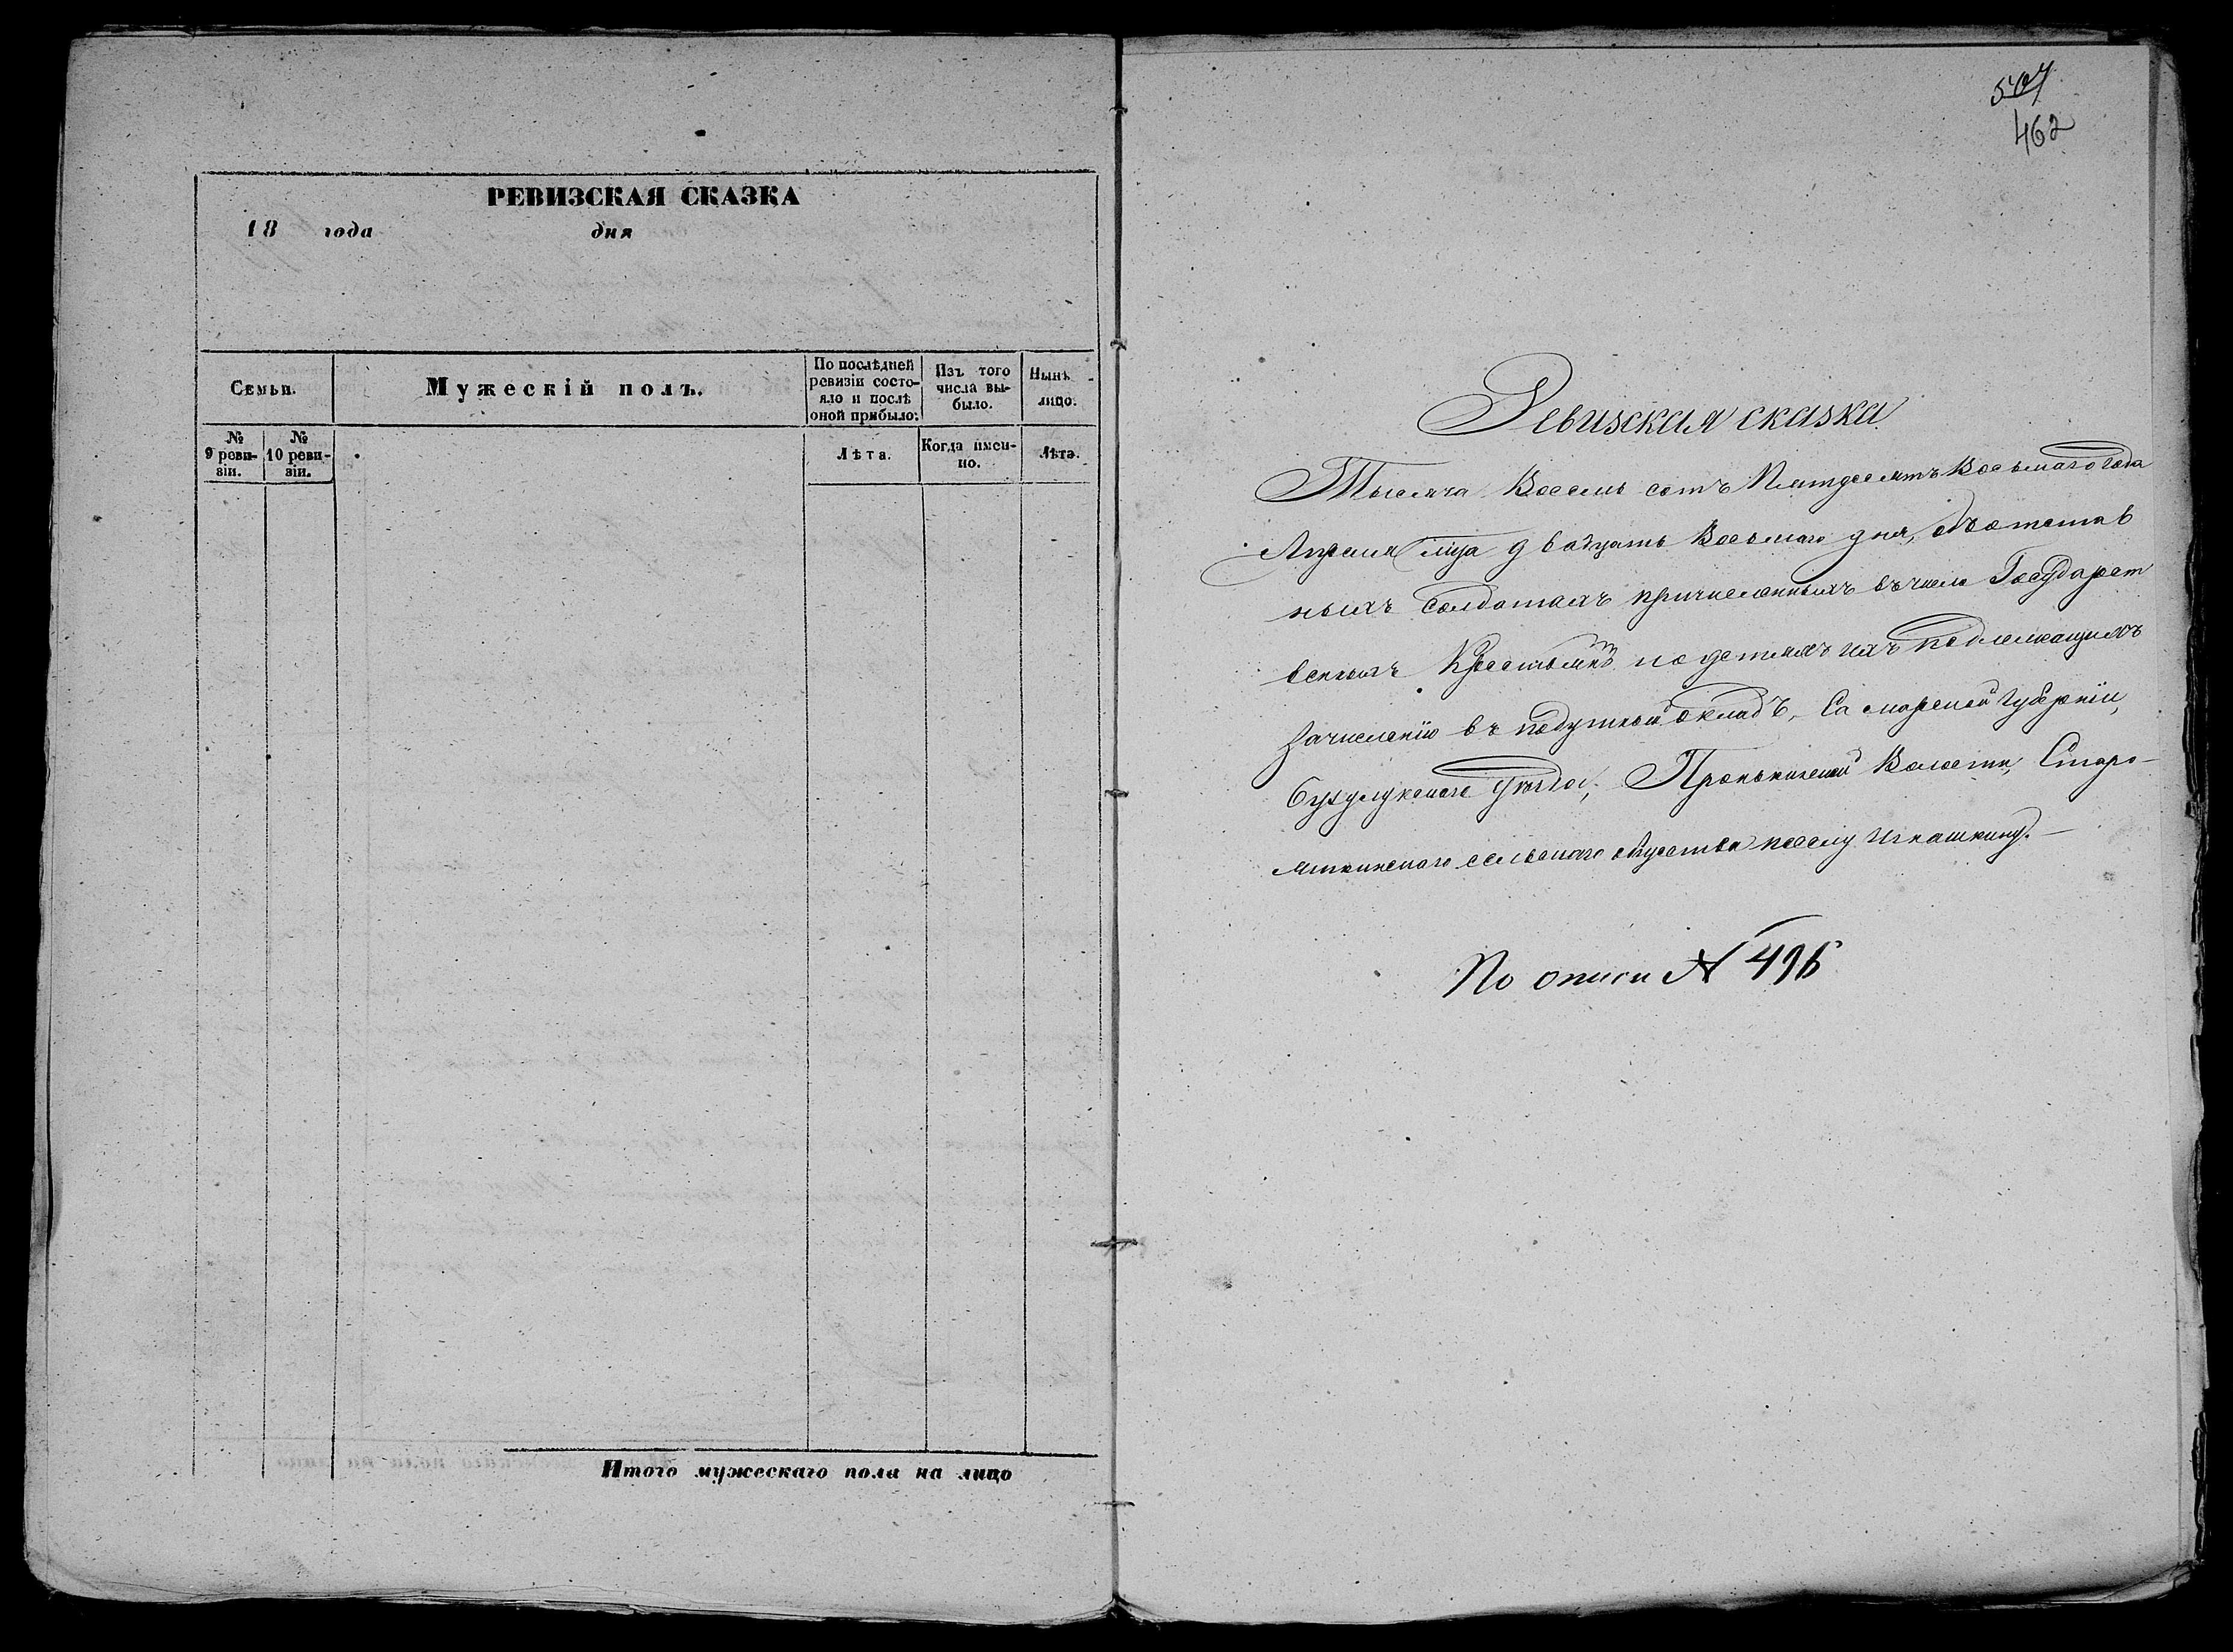 РЕВИЗСКАЯ СКАЗКА
18 года дня
Семьи.
Мужескій полъ.
По послѣдней
ревизіи состо-
яло и послѣ
оной прибыло:
Изъ того
числа вы-
было.
Нынѣ
лицо.
№
9 реви-
зіи.
№
10 реви-
зіи.
Лѣта.
Когда имен-
но.
Лѣта.
Итого мужескаго пола на лицо
507
462
Ревизская сказка
Тысяча Восемь сотъ Пятдесятъ Восьмаго года
Апреля мца двадцать Восьмаго дня, объ отстав
ныхъ Солдатахъ причисленныхъ въ число Государст
венныхъ Крестьянъ и о детяхъ ихъ подлежащихъ
зачисленію въ подушный окладъ, Самарской Губерніи,
Бузулукскаго уѣзда, Пронькинской Волости, Старо-
яшкинскаго сельскаго общества по селу Игнашкину.
По описи № 496